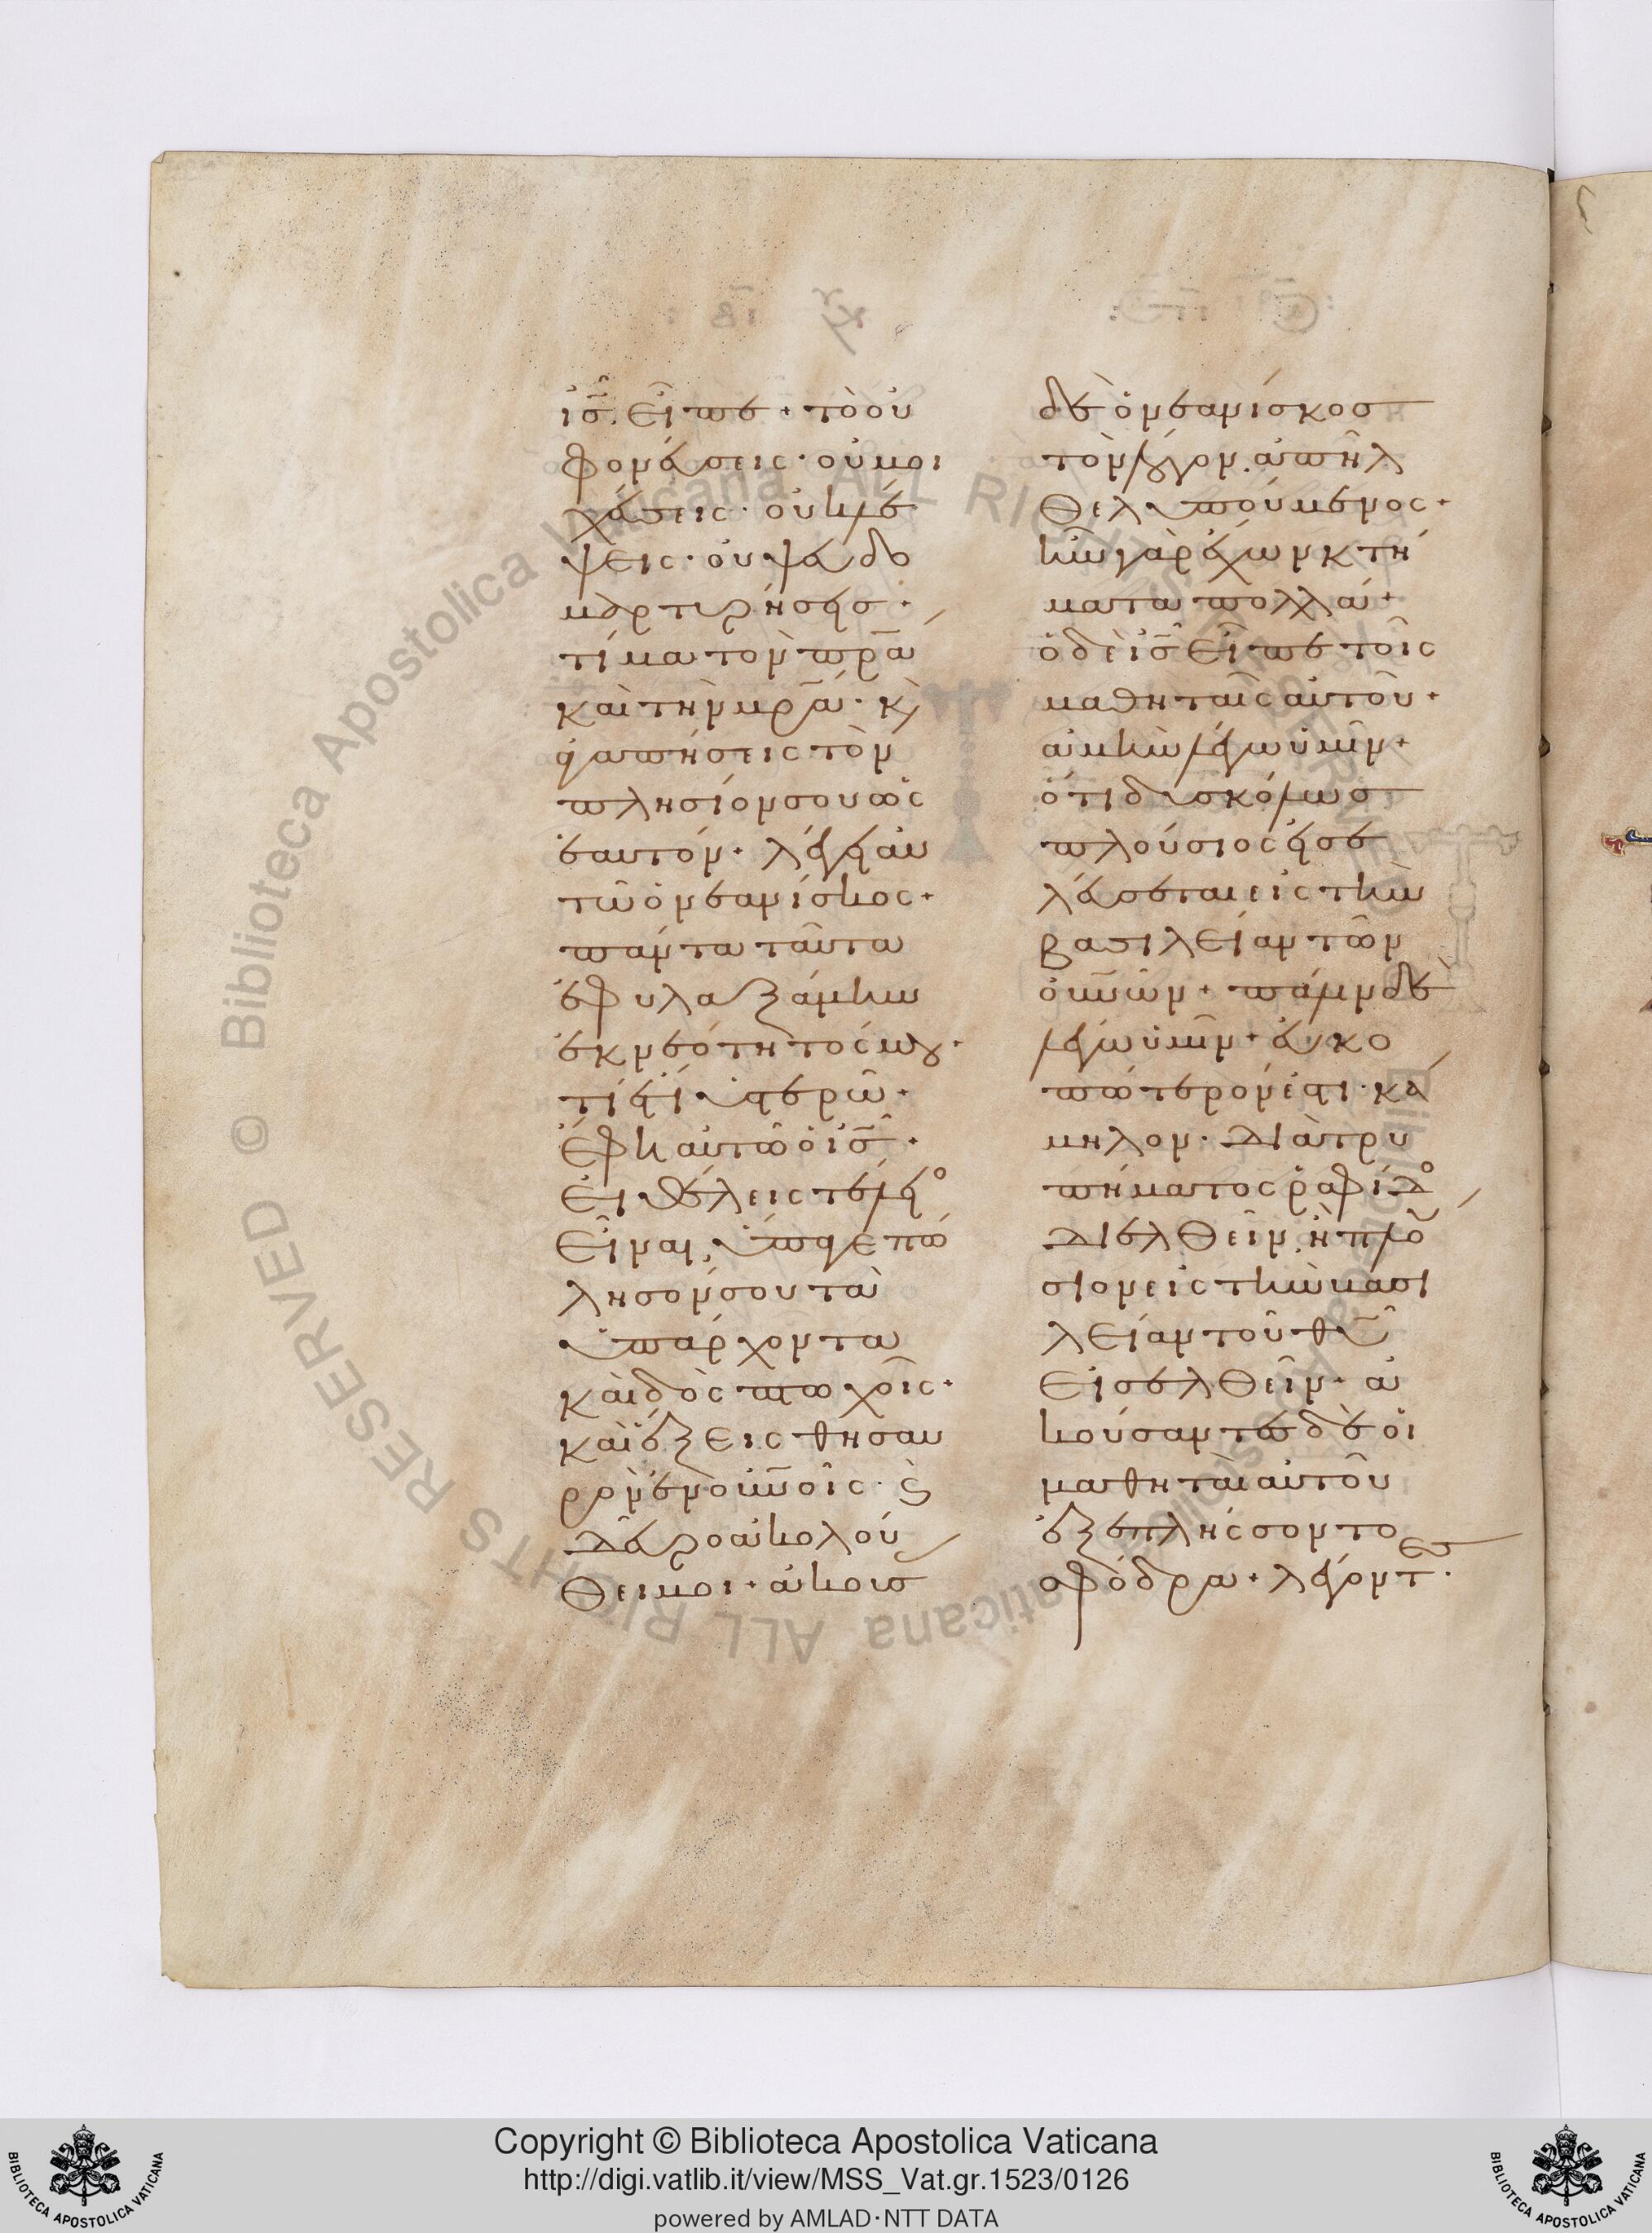 ἰ̅ς̅. εἶπε· τὸ οὐ
φονεύσεις· οὐ μοι
χεύσεις· οὐ κλέ
ψεις· οὐ ψευδο
μαρτυρήσεις·
τίμα τὸν π̅ρ̅α̅
καὶ τὴν μ̅ρ̅α̅· κ̀
ἀγαπήσεις τὸν
πλησίον σου ὡς
ἑαυτόν· λέγει αὐ
τῶ ὁ νεανίσκος·
πάντα ταῦτα
ἐφυλαξάμην
ἐκ νεότητός μου·
τί ἔτι ὑστερῶ·
ἔφη αὐτῶ ὁ ἰ̅ς̅·
εἰ θέλεις τέλειο
εἶναι, ὕπαγε πώ
λησόν σου τὰ
ὑπάρχοντα
καὶ δὸς πτωχοῖς·
καὶ ἕξεις θησαυ
ρὸν ἐν ο̅υ̅ν̅οῖς· ϛ̀
δεῦρο ἀκολού
θει μοι· ἀκούσ
δὲ ὁ νεανίσκος
τὸν λόγον. ἀπῆλ
θε λυπούμενος·
ἦν γὰρ ἔχων κτή
ματα πολλά·
ὁ δὲ ἰ̅ς̅ εἶπε τοῖς
μαθηταῖς αὐτοῦ·
ἀμὴν λέγω ὑμῖν·
ὅτι δυσκόλως
πλούσιος εἰσε
λεύσεται εἰς τὴν
βασιλείαν τῶν
ο̅υ̅ν̅ῶν· πάλιν δὲ
λέγω ὑμῖν· εὐκο
πώτερόν ἐστι· κά
μηλον· διὰ τρυ
πήματος ῥαφίδο
διελθεῖν. ἢ πλού
σιον εἰς τὴν βασι
λείαν τοῦ θ̅υ̅
εἰσελθεῖν· ἀ
κούσαντες δὲ οἱ
μαθηταὶ αὐτοῦ
ἐξεπλήσσοντο
σφόδρα· λέγοντες·
Copyright © Biblioteca Apostolica Vaticana
http://digi.vatlib.it/view/MSS_Vat.gr.1523/0126
powered by AMLAD·NTT DATA
BIBLIOTECA APOSTOLICA VATICANA
BIBLIOTECA APOSTOLICA VATICANA
© Biblioteca Apostolica Vaticana ALL RIGHTS RESERVED
© Biblioteca Apostolica Vaticana ALL RIGHTS RESERVED